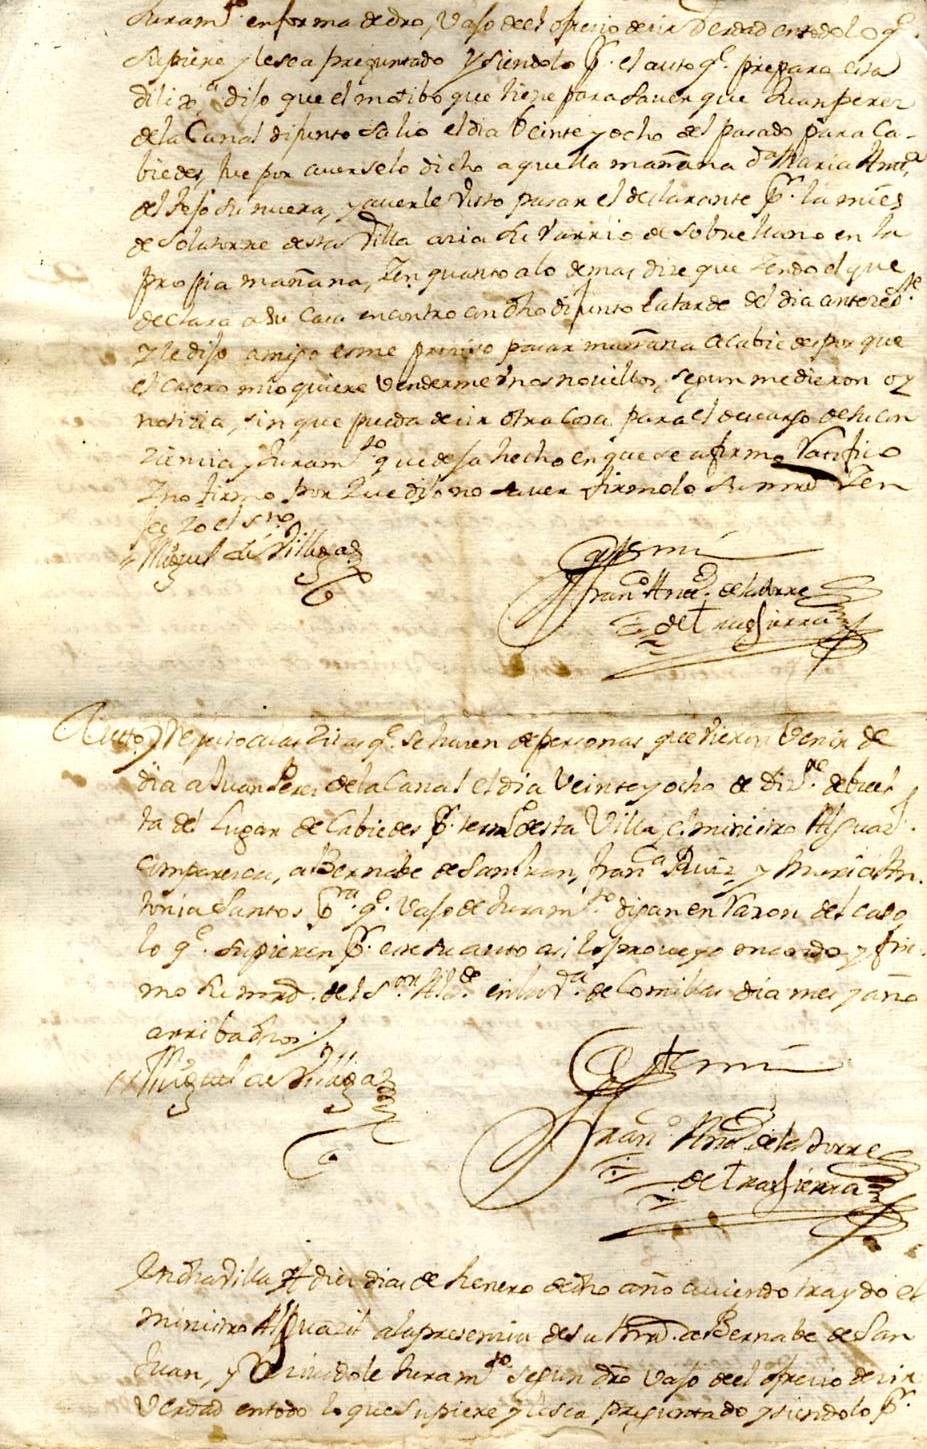 Juramto en forma de dro, vajo de el ofrecio decir Verdad en todo lo q.
Supiere y le sea preguntado y siendolo pr. el auto q. prepara esta
dilixa. dijo que el motibo que tiene para Saver que Juan perez
de la Canal difunto salio el dia Veinte y ocho del pasado para Ca-
biedes fue por averselo dicho aquella mañana Da Maria Anta
del su nuera, y averle visto pasar el declarante pr. la mies
de Solatorre desta Villa acia el Varrio de Sobrellano en la
propia mañana, Y en quanto a lo demas dize que Yendo el que
declara a su Casa encontro con dho difunto la tarde del dia antecedte.
Y le dijo amigo es me preziso pasar mañana a Cabiedes por que
el casero mio quiere Venderme Unos novillos, segun me dieron oy
notizia, sin que pueda decir otra Cosa para el descargo de su Con
ziencia y Juramto que deja hecho en que se afirmo Ratifico
Y no firmo por que dijo no saver firmolo su mrd Y en
fee Yo el sno
Miguel de Villegas
Ante mi
Franco Anto. de la torre
de Trassierra
Auto Respecto a las Zitas q. se hacen de personas que vieron Venir de
dia a Juan Perez de la Canal el dia Veinte y ocho de Dizre. de buel
ta del Lugar de Cabiedes pr. termo desta Villa, el ministro Alguazl.
Comparezca, a Bernabe de San Juan, Franca Ruiz, y Maria An-
tonia Santos pra. q. vajo de Juramto. digan en razon del caso
lo q. supieren pr. este su auto asi lo proveyo mando y fir-
mo su mrd. del Sor. Alde. en la va. de Comillas dia mes y año
arriba dhos
Miguel de Villegas
Ante mi
Franco Anto. de la torre
de Trassierra
En dha Villa A diez dias de henero de dho año aviendo traydo el
ministro Alguazil a la presencia de su Mrd. a Bernabe de San
Juan, y Reciuidole Juramto segun dro vajo de el ofrecio decir
Verdad en todo lo que Supiere y le sea preguntado y siendolo pr.